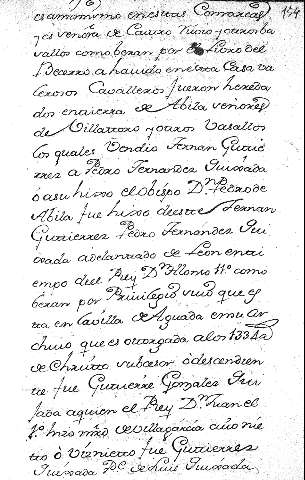 154
es asimismo en estas Comarcas
y es señora de Castro Nuevo y otros ba
vallos como beran por el Libro del
Becerro a havido en esta Casa va
lerosos Cavalleros fueron hereda
dos en tierra de Abila señores
de Villatoro y otros Vasallos
los quales Vendio Fernan Gutie
rrez a Pedro Fernandez Quixada
o a su hixo el obispo Dn. Pedro de
Abila fue hixo deeste Fernan
Gutierrez Pedro Fernandez Qui
xada adelantado de Leon en ti
empo del Rey Dn. Alonso 11º como
beran por Privilegio suio que es
ta en la Villa de Aguada en su Ar
chivo que es otorgada a los 1334 a
de Christo subcesor o descendien
te fue Gutierre Gonzalez Qui
jada a quien el Rey Dn. Juan el
1º hizo mrd. de Villagarcia cuio nie
tto o Viznieto fue Gutierrez
Quixada Pe. de Luis Quixada